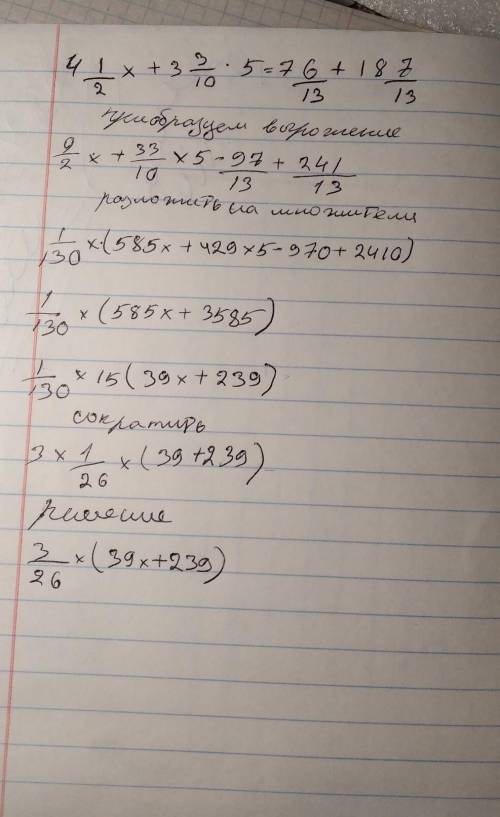 4 1/2 x + 3 3/10 · 5 = 7 6/13 + 18 7/13
приобразуем выражение
9/2 x + 33/10 × 5 - 97/13 + 241/13
разложить на множители
1/130 × (585x + 429 × 5 - 970 + 2410)
1/130 × (585x + 3585)
1/130 × 15 (39x + 239)
сократить
3 × 1/26 × (39 + 239)
решение
3/26 × (39x + 239)